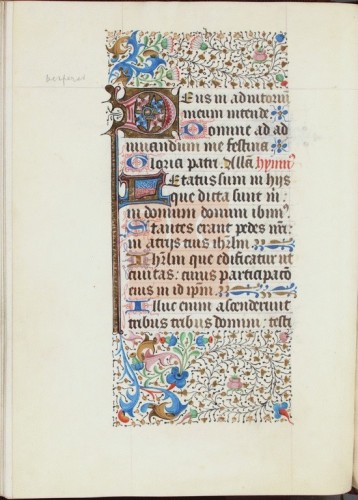 Vesperas
Deus in adiutoriu
meum intende
Domine ad ad
iuuandum me festina
Gloria patri. Allã. Hymn9
Letatus sum in hijs
que dicta sunt m̃:
in domum domini ibim9
Stantes erant pedes nr̃i:
in atrijs tuis ihrlm̃
Ihrlm̃ que edificatur ut
ciuitas: cuius participacõ
eius in id ip̃m.
Illuc enim ascenderunt
tribus tribus domini: testi